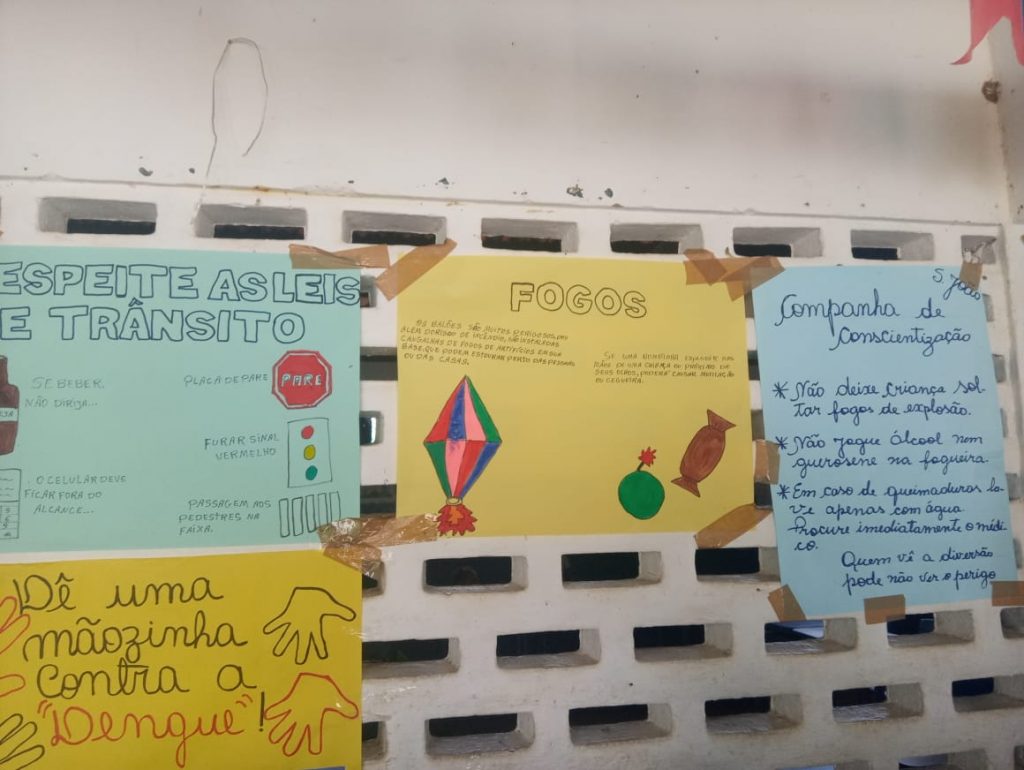 ESPEITE AS LEIS
E TRÂNSITO
SE BEBER
NÃO DIRIJA...
PLACA DE PARE
PARE
FURAR SINAL
VERMELHO
. O CELULAR DEVE
FICAR FORA DO
ALCANCE...
PASSAGEM AOS
PEDESTRES NA
FAIXA.
FOGOS
OS BALÕES SÃO MUITOS PERIGOSOS, POIS
ALÉM DO RISCO DE INCÊNDIO, SÃO INSTALADAS
CANGALHAS DE FOGOS DE ARTIFÍCIOS EM SUA
BASE, QUE PODEM ESTOURAR PERTO DAS PESSOAS
OU DAS CASAS.
SE UMA BOMBINHA EXPLODIR NAS
MÃOS DE UMA CRIANÇA OU PRÓXIMO DE
SEUS OLHOS, PODERÁ CAUSAR MUTILAÇÃO
OU CEGUEIRA.
S. João
Companha de
Conscientização
* Não deixe criança sol-
tar fogos de explosão.
* Não jogue Álcool nem
querosene na fogueira.
* Em caso de queimaduras la-
ve apenas com água.
Procure imediatamente o médi-
co.
Quem vê a diversão
pode não ver o perigo
Dê uma
mãozinha
contra a
"Dengue"!